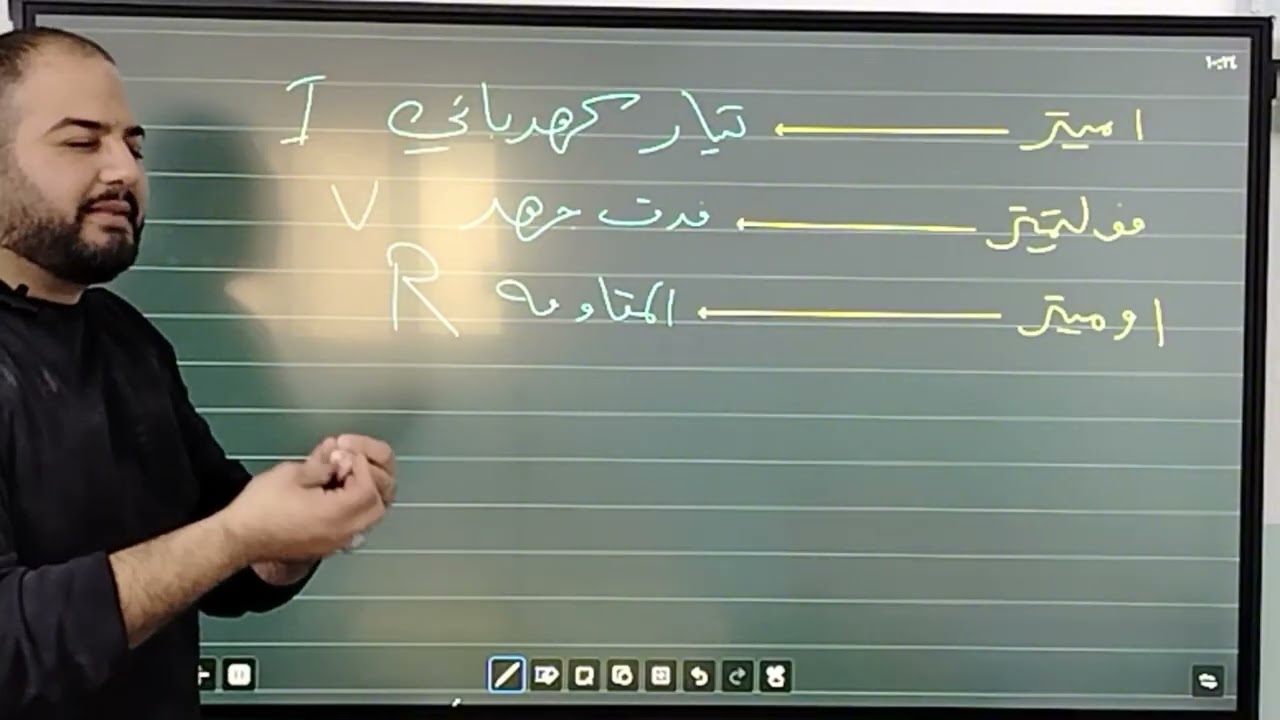 اميتر ← تيار كهربائي I
فولتميتر ← فرق جهد V
اوميتر ← المقاومه R